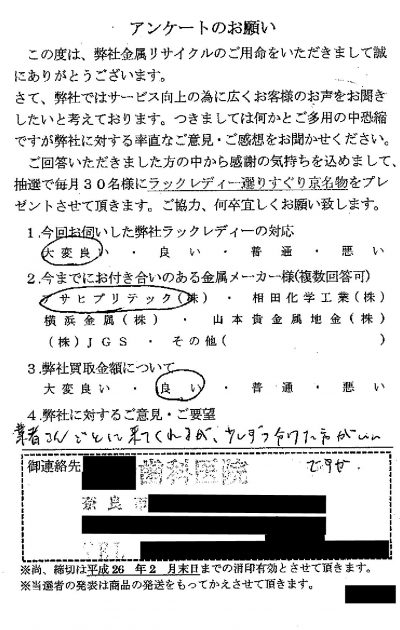 アンケートのお願い
この度は、弊社金属リサイクルのご用命をいただきまして誠
にありがとうございます。
さて、弊社ではサービス向上の為に広くお客様のお声をお聞き
したいと考えております。つきましては何かとご多用の中恐縮
ですが弊社に対する率直なご意見・ご感想をお聞かせください。
ご回答いただきました方の中から感謝の気持ちを込めまして、
抽選で毎月30名様にラックレディー選りすぐり京名物をプレ
ゼントさせて頂きます。ご協力、何卒宜しくお願い致します。
1.今回お伺いした弊社ラックレディーの対応
大変良い ・ 良い ・ 普通 ・ 悪い
2.今までにお付き合いのある金属メーカー様(複数回答可)
アサヒプリテック(株) ・ 相田化学工業(株)
横浜金属(株) ・ 山本貴金属地金(株)
(株)JGS ・ その他( )
3.弊社買取金額について
大変良い ・ 良い ・ 普通 ・ 悪い
4.弊社に対するご意見・ご要望
業者さんごとに来てくれるが、少しずつ分けた方がいい
ですか。
御連絡先 歯科医院
奈良市
TEL
※尚、締切は平成26 年2 月末日までの消印有効とさせて頂きます。
※当選者の発表は商品の発送をもってかえさせて頂きます。